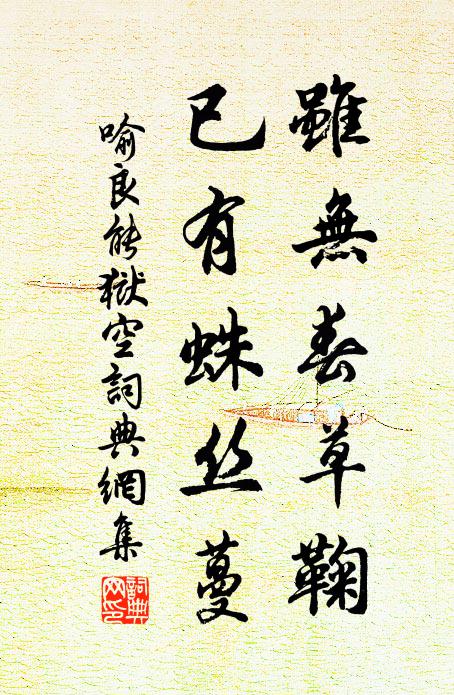 雖無春草鞠
已有蛛丝蔓
喻良能獄空詞典網集
詞典